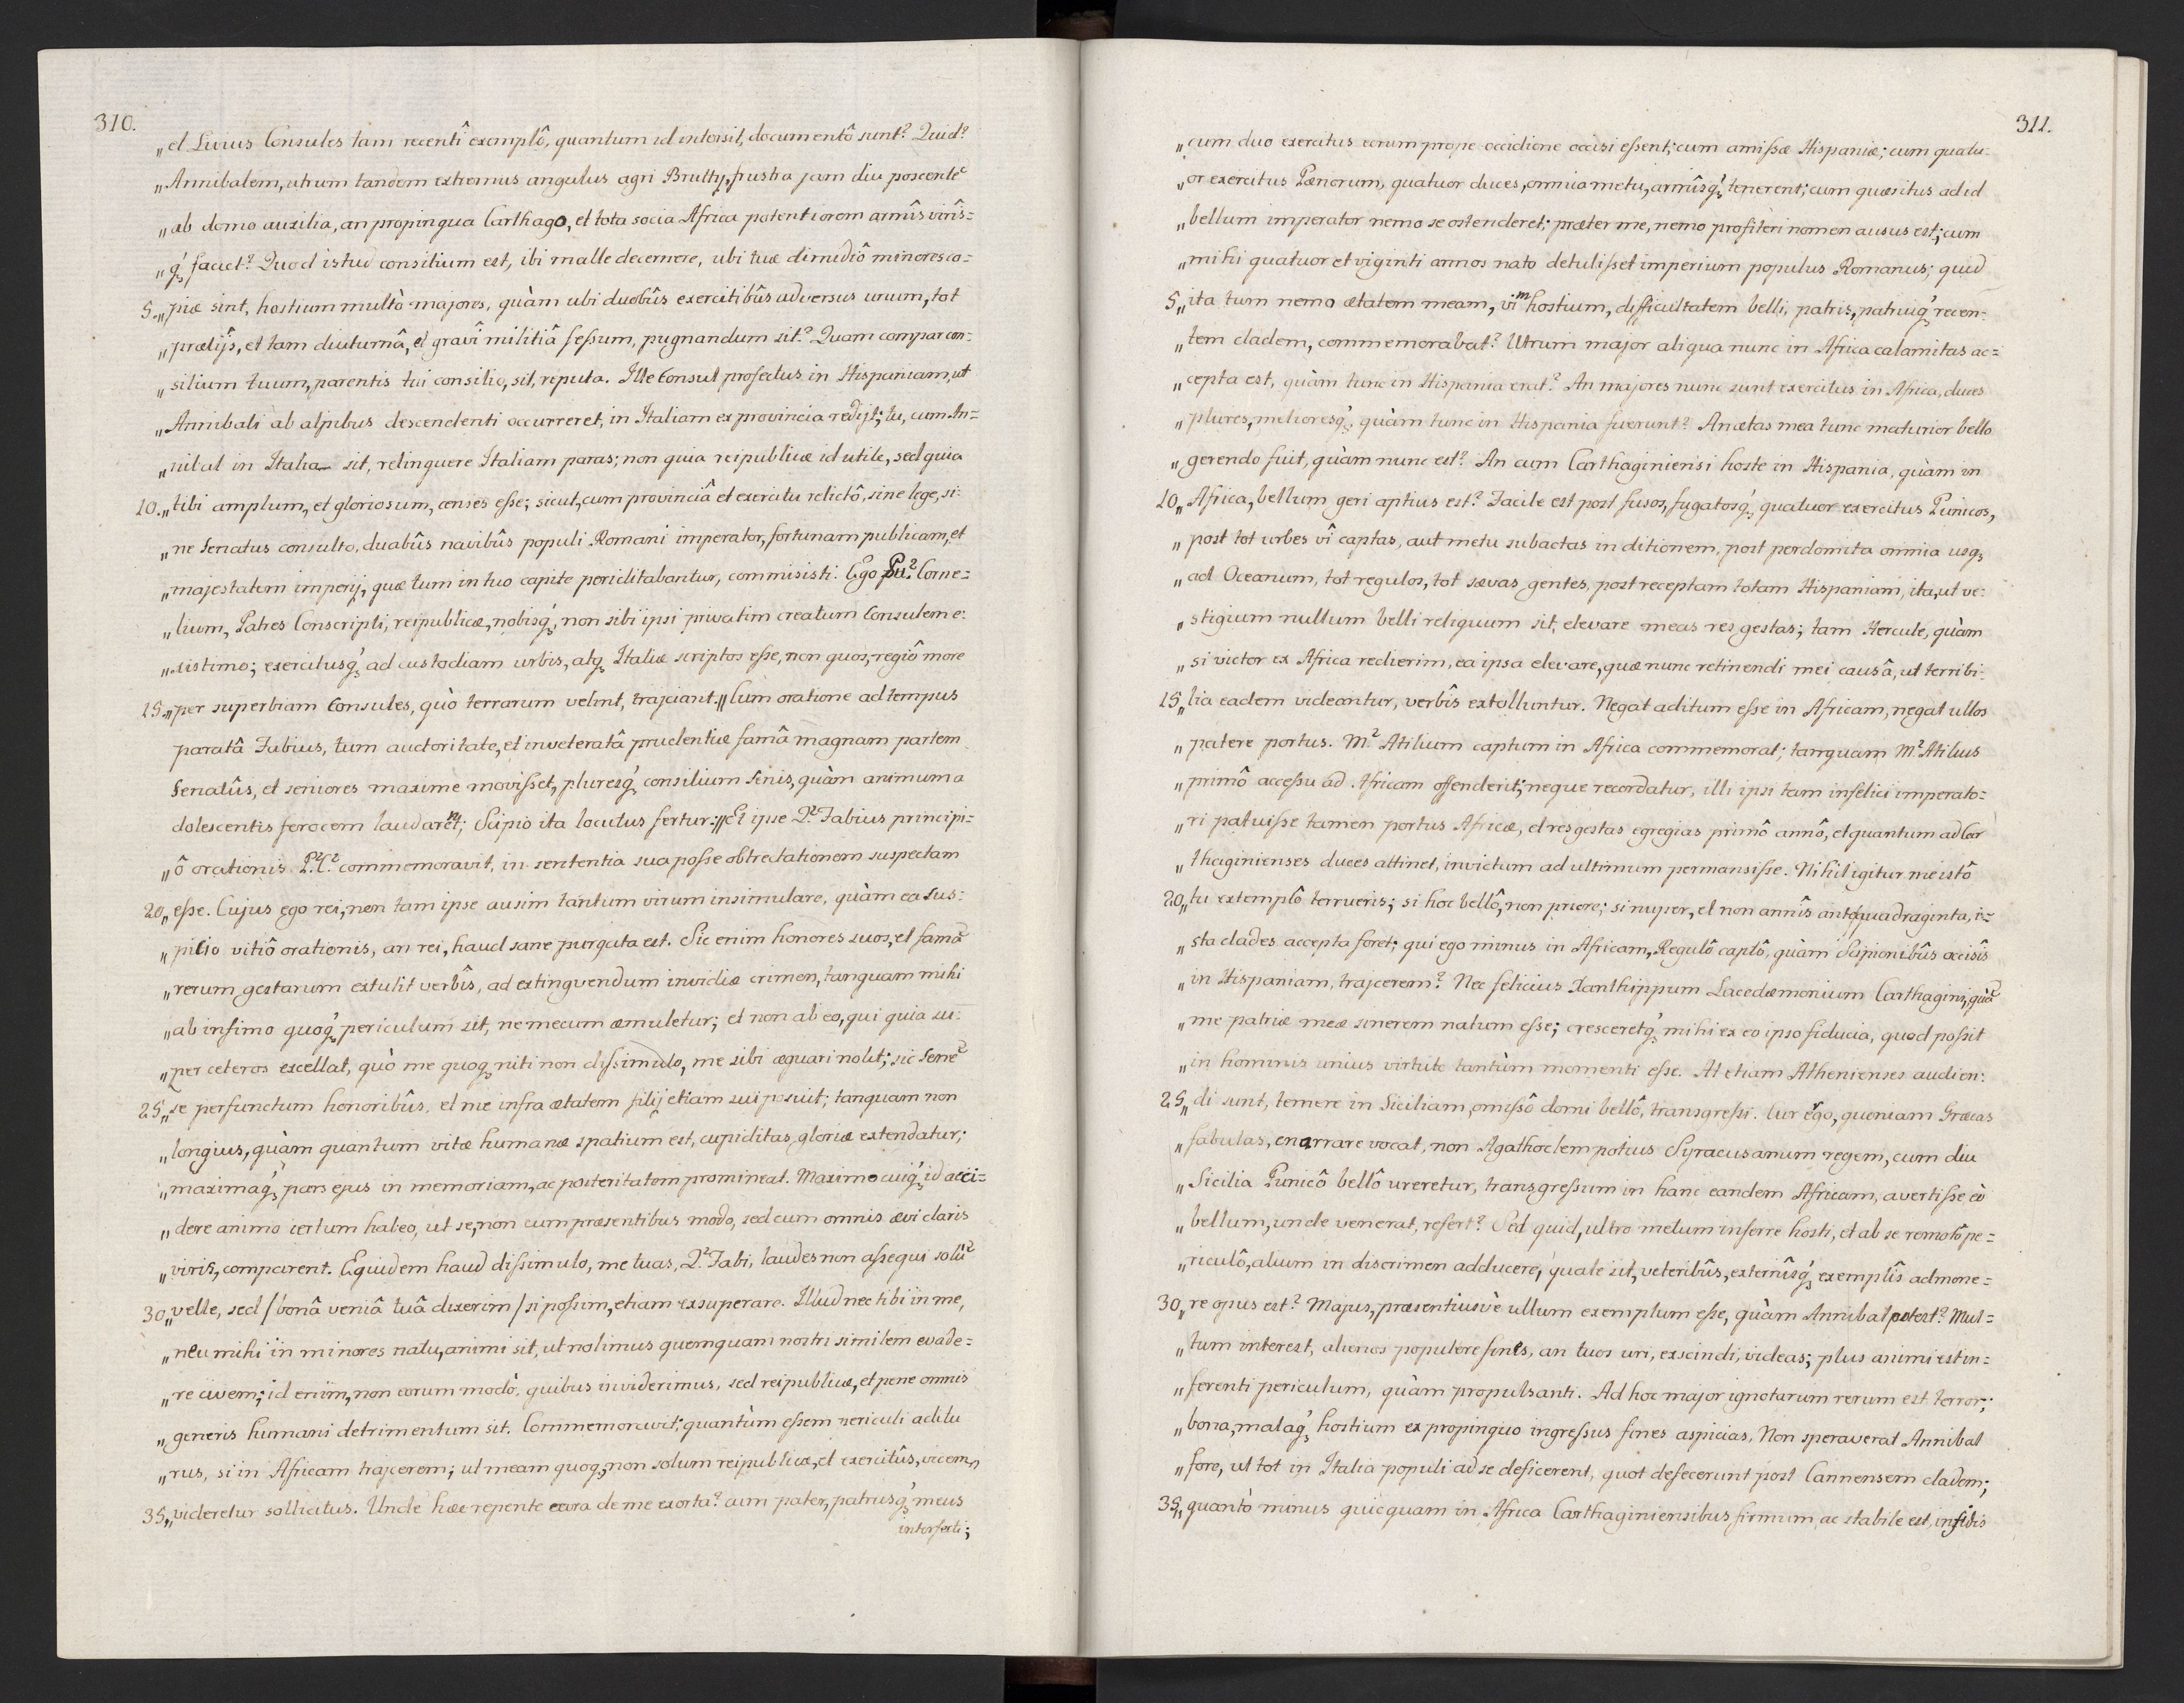 310.
„et Livius Consules tam recentî exemplô, quantum id intersit, documentô sunt? Quid?
„Annibalem, utrum tandem extremus angulus agri Bruttÿ, frustra jam diu poscente᷉
„ab domo auxilia, an propinqua Carthago, et tota socia Africa potentiorem armîs virîs=
„q́ꝫ faciet? Quod istud consilium est, ibi malle decernere, ubi tuæ dimidiô minores co=
5.„piæ sint, hostium multò majores, quàm ubi duobûs exercitibûs adversus unum, tot
„prælijs, et tam diuturnâ, et gravî militiâ feſsum, pugnandum sit? Quam compar con=
„silium tuum, parentis tui consilio, sit, reputa. Ille Consul profectus in Hispaniam, ut
„Annibali ab alpibus descendenti occurreret, in Italiam ex provincia redijt; tu, cum An=
„nibal in Italia sit, relinquere Italiam paras; non quia reipublicæ id utile, sed quia
10.„tibi amplum, et gloriosum, censes eſse; sicut, cum provinciâ et exercitu relictô, sine lege, si=
„ne Senatus consulto, duabûs navibûs populi Romani imperator, fortunam publicam, et
„majestatem imperij, quæ tum in tuo capite periclitabantur, commisisti. Ego Pu? Corne=
„lium, Patres Conscripti, reipublicæ, nobisq́ꝫ, non sibi ipsi privatim creatum Consulem e=
„xistimo; exercitusq́ꝫ ad custodiam urbis, atqꝫ Italiæ scriptos eſse, non quos, regiô more
15.„per superbiam Consules, quò terrarum velint, trajciant.„Cum oratione ad tempus
paratâ Fabius, tum auctoritate, et inveteratâ prudentiæ famâ magnam partem
Senatûs, et seniores maxime moviſset, pluresq́ꝫ consilium Senis, quàm animum a
dolescentis ferocem laudarent; Scipio ita locutus fertur:„Et ipse Q? Fabius principi=
„ô orationis P? C? commemoravit, in sententia sua poſse obtrectationem suspectam
20„eſse. Cujus ego rei, non tam ipse ausim tantum virum insimulare, quàm ea sus=
„picio vitiô orationis, an rei, haud sane purgata est. Sic enim honores suos, et fama᷉
„rerum gestarum extulit verbîs, ad extingvendum invidiæ crimen, tanquam mihi
„ab infimo quoq́ꝫ periculum sit, ne mecum æmuletur; et non ab eo, qui quia su=
„per ceteros excellat, quò me quoqꝫ niti non diſsimulo, me sibi æquari nolit; sic Sene᷉
25„se perfunctum honoribûs, et me infra ætatem filij etiam sui posuit; tanquam non
„longius, quàm quantum vitæ humanæ spatium est, cupiditas gloriæ extendatur;
„maximaq́ꝫ pars ejus in memoriam, ac posteritatem promineat. Maximo cuiq́ꝫ id acci=
„dere animo certum habeo, ut se, non cum præsentibus modo, sed cum omnis ævi claris
„viris, comparent. Equidem haud diſsimulo, me tuas, Q? Fabi, laudes non aſsequi solu᷉
30„velle, sed / bonâ veniâ tuâ dixerim / si poſsim, etiam exsuperare. Illud nec tibi in me,
„neu mihi in minores natu, animi sit, ut nolimus quemquam nostri similem evade=
„re civem; id enim, non eorum modò, quibus inviderimus, sed reipublicæ, et pene omnis
„generis humani detrimentum sit. Commemoravit, quantùm eſsem periculi aditu
„rus, si in Africam trajcerem; ut meam quoqꝫ, non solum reipublicæ, et exercitûs, vicem,
35„videretur sollicitus. Unde hæc repente cura de me exorta? cum pater, patrusq́ꝫ meus
interfecti;
311.
„cum duo exercitus eorum prope occidione occisi eſsent; cum amiſsæ Hispaniæ; cum quatu=
„or exercitus Pænorum, quatuor duces, omnia metu, armîsq́ꝫ tenerent; cum quæsitus ad id
„bellum imperator nemo se ostenderet; præter me, nemo profiteri nomen ausus est; cum
„mihi quatuor et viginti annos nato detuliſset imperium populus Romanus; quid
5„ita tum nemo ætatem meam, vim hostium, difficultatem belli, patris, patruiq́ꝫ recen=
„tem cladem, commemorabat? Utrum major aliqua nunc in Africa calamitas ac=
„cepta est, quàm tunc in Hispania erat? An majores nunc sunt exercitus in Africa, duces
„plures, melioresq́ꝫ, quàm tunc in Hispania fuerunt? An ætas mea tunc maturior bello
„gerendo fuit, quàm nunc est? An cum Carthaginiensi hoste in Hispania, quàm in
10„Africa, bellum geri aptius est? Facile est post fusos, fugatosq́ꝫ quatuor exercitus Punicos,
„post tot urbes vî captas, aut metu subactas in ditionem, post perdomita omnia usqꝫ
„ad Oceanum, tot regulos, tot sævas gentes, post receptam totam Hispaniam, ita, ut ve=
„stigium nullum belli reliquum sit, elevare meas res gestas; tam Hercule, quàm
„si victor ex Africa redierim, ea ipsa elevare, quæ nunc retinendi mei causâ, ut terribi=
15„lia eadem videantur, verbîs extolluntur. Negat aditum eſse in Africam, negat ullos
„patere portus. M? Atilium captum in Africa commemorat; tanquam M? Atilius
„primô acceſsu ad Africam offenderit; neque recordatur, illi ipsi tam infelici imperato=
„ri patuiſse tamen portus Africæ, et res gestas egregias primô annô, et quantum ad Car
„thaginienses duces attinet, invictum ad ultimum permansiſse. Nihil igitur me istô
20„tu extemplô terrueris; si hoc bellô, non priore; si nuper, et non annîs ante quadraginta, i=
„sta clades accepta foret; qui ego minus in Africam, Regulô captô, quàm Scipionibûs occisîs
„in Hispaniam, trajcerem? Nec felicius Xanthippum Lacedæmonium Carthagini, qua᷉
„me patriæ meæ sinerem natum eſse; cresceretq́ꝫ mihi ex eo ipso fiducia, quod poſsit
„in hominis unius virtute tantùm momenti eſse. At etiam Athenienses audien=
25„di sunt, temere in Siciliam, omiſsô domi bellô, transgreſsi. Cur ergo, quoniam Græcas
„fabulas, enarrare vocat, non Agathoclem potius Syracusanum regem, cum diu
„Sicilia Punicô bellô ureretur, transgreſsum in hanc eandem Africam, avertiſse eò
„bellum, unde venerat, refert? Sed quid, ultro metum inferre hosti, et ab se remotô pe=
„riculô, alium in discrimen adducere, quale sit, veteribûs, externîsq́ꝫ exemplîs admone=
30„re opus est? Majus, præsentiusvè ullum exemplum eſse, quàm Annibal potest? Mul=
„tum interest, alienos populere fines, an tuos uri, exscindi, videas; plus animi est in=
„ferenti periculum, quàm propulsanti. Ad hoc major ignotarum rerum est terror;
„bona, malaq́ꝫ hostium ex propinquo ingreſsus fines aspicias, Non speraverat Annibal
„fore, ut tot in Italia populi ad se deficerent, quot defecerunt post Cannensem cladem;
35„quantò minus quicquam in Africa Carthaginiensibus firmum, ac stabile est, infidis